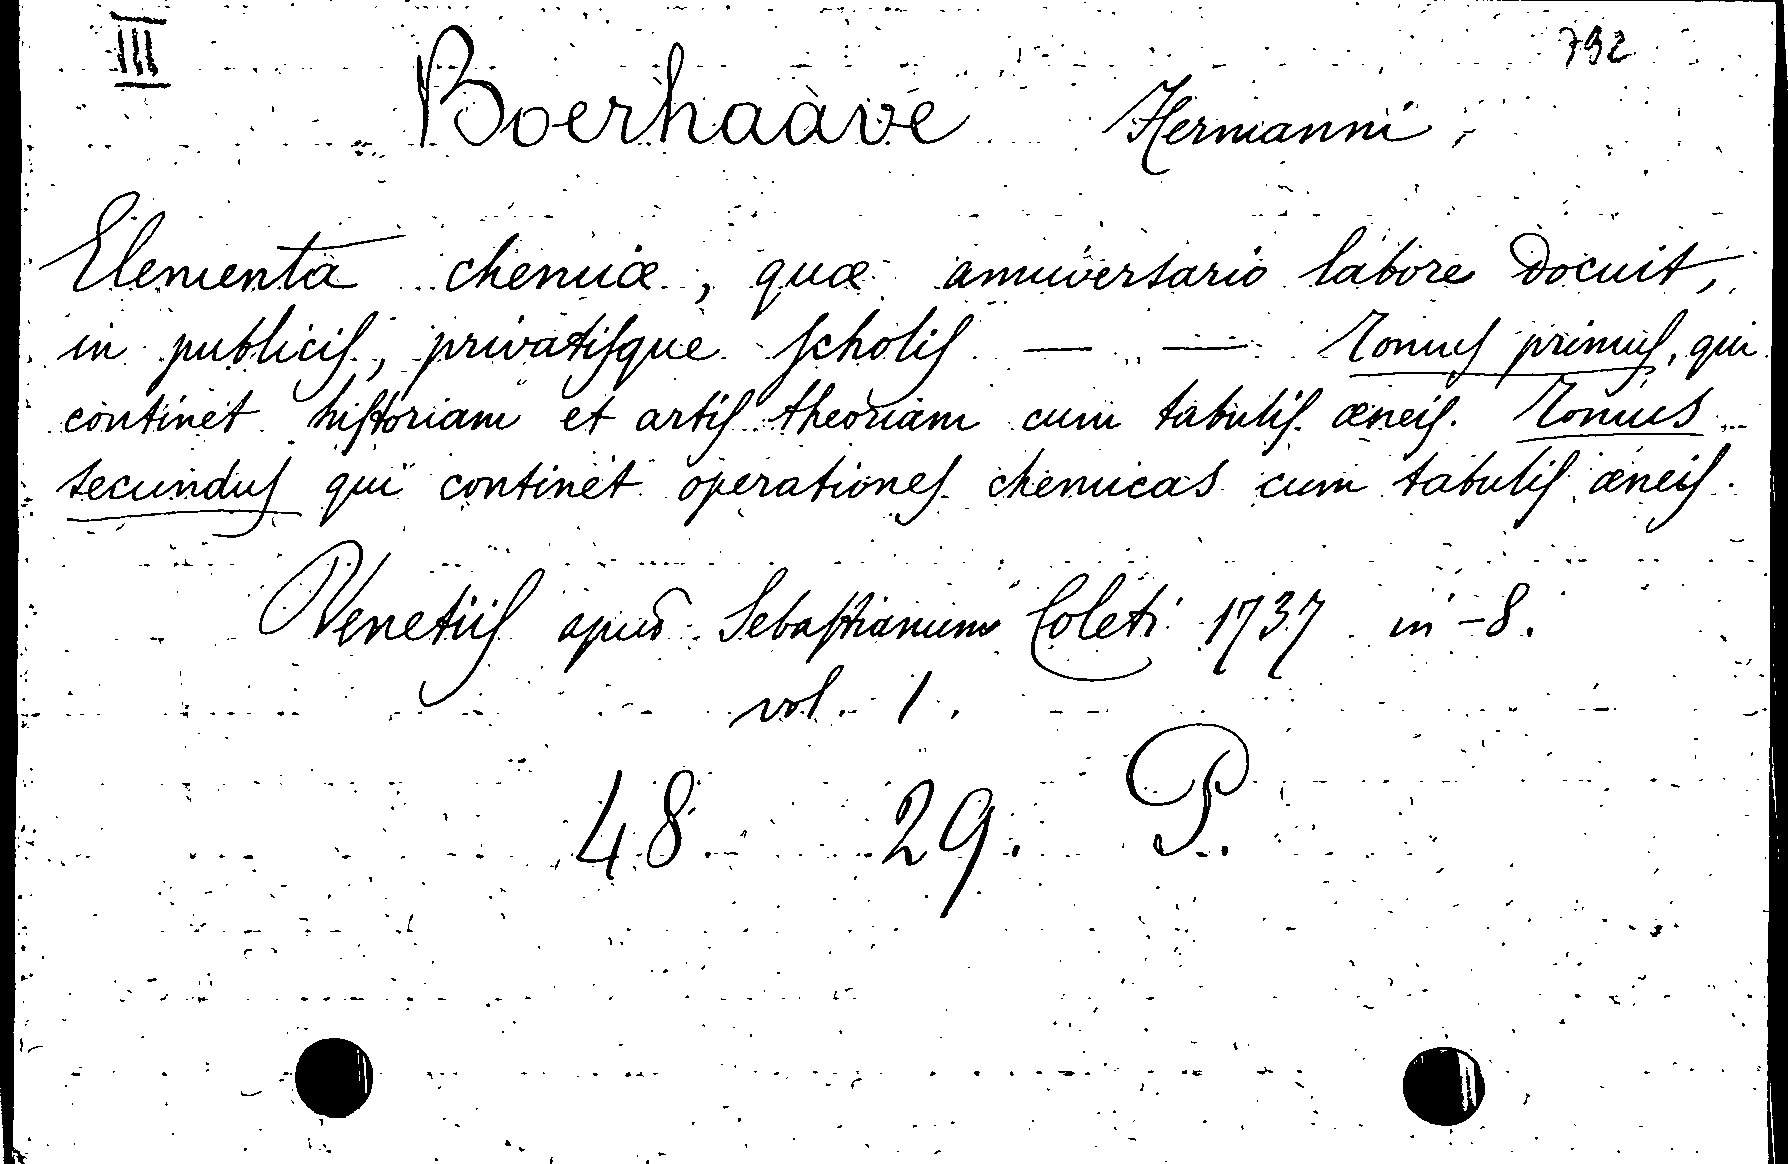 III
792
Boerhaave Hermanni,
Elementa chemiæ, quæ anniversario labore docuit,
in publicis, privatisque scholis — — Tomus primus, qui
continet historiam et artis theoriam cum tabulis æneis. Tomus
secundus qui continet operationes chemicas cum tabulis æneis.
Venetiis apud Sebastianum Coleti 1737 in-8.
vol. 1.
48 29. P.